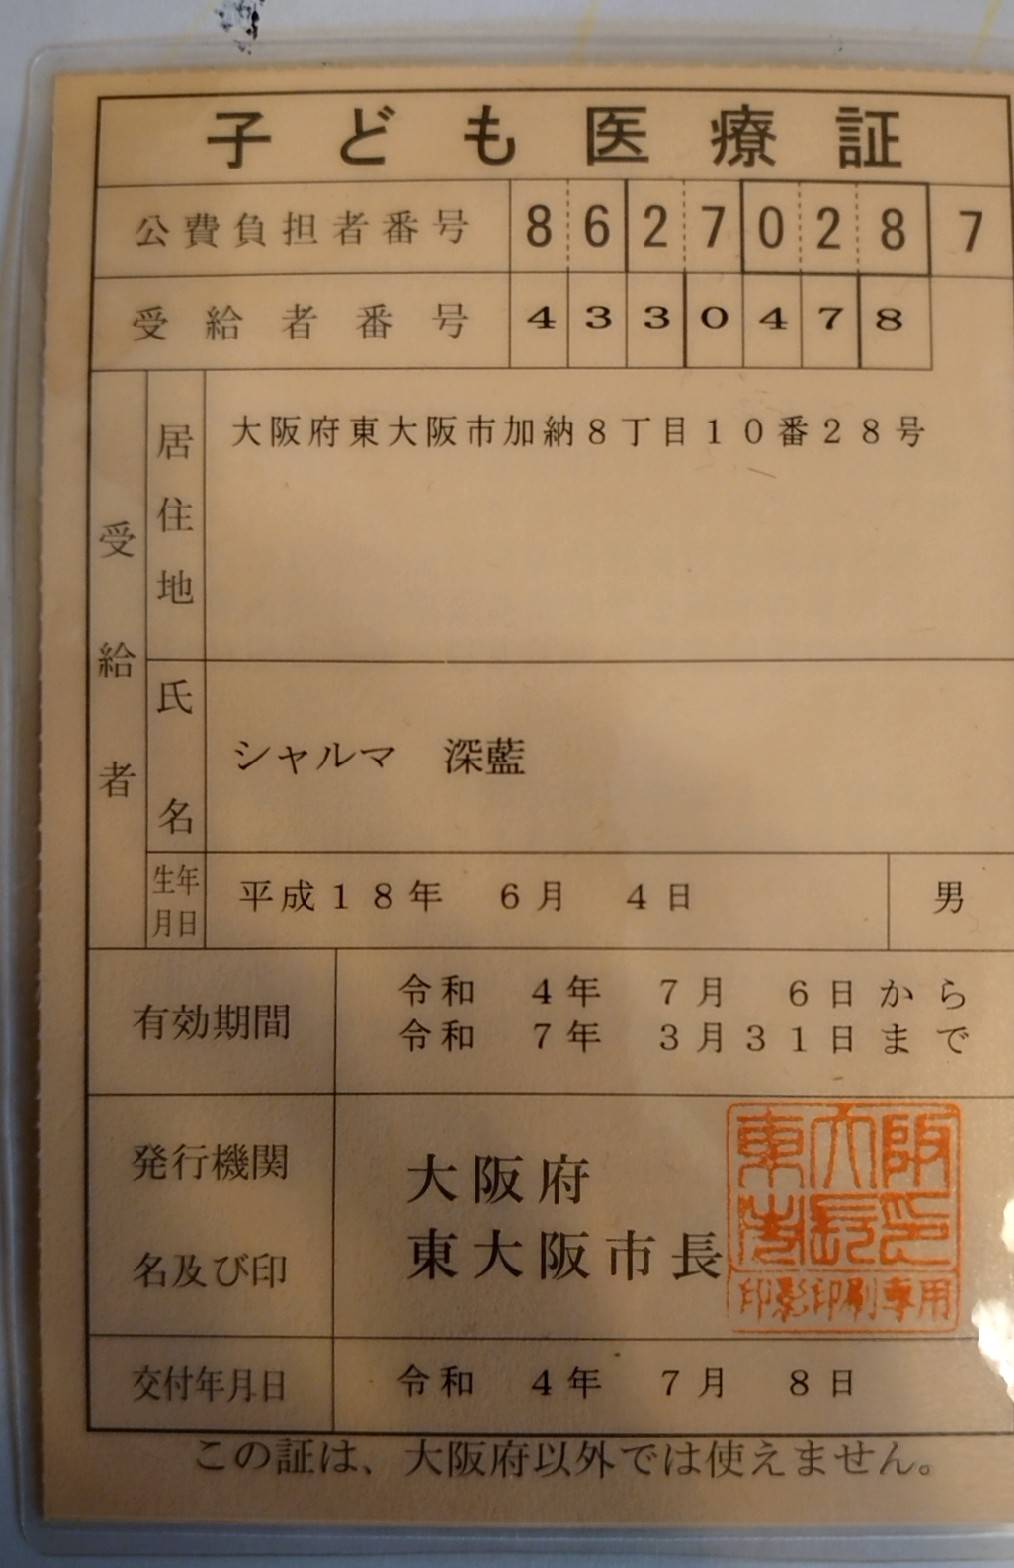 子ども医療証
公費負担者番号 86270287
受給者番号 4330478
受給者
居住地 大阪府東大阪市加納8丁目10番28号
氏名 シャルマ 深藍
生年月日 平成18年 6月 4日 男
有効期間 令和 4年 7月 6日から
令和 7年 3月31日まで
発行機関 大阪府
名及び印 東大阪市長
東大阪
市長之印
印影印刷専用
交付年月日 令和 4年 7月 8日
この証は、大阪府以外では使えません。